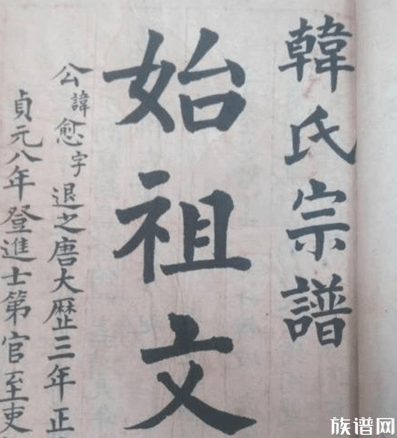 韓氏宗譜
始祖文
公諱愈字退之唐大歷三年正
貞元八年登進士第官至吏
族谱网